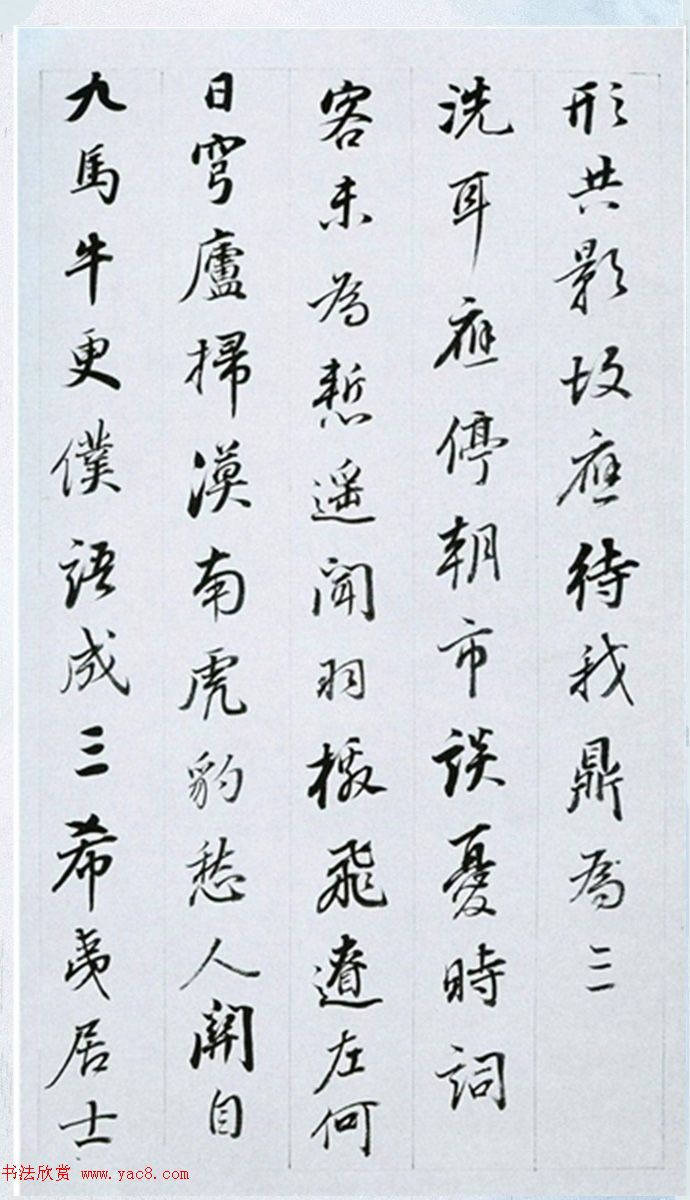 形共影故應待我鼎爲三
洗耳應停朝市談憂時詞
客未爲慙遥聞羽檄飛遼左何
日穹廬掃漠南虎豹愁人關自
九馬牛更僕語成三希夷居士
书法欣赏 www.yac8.com